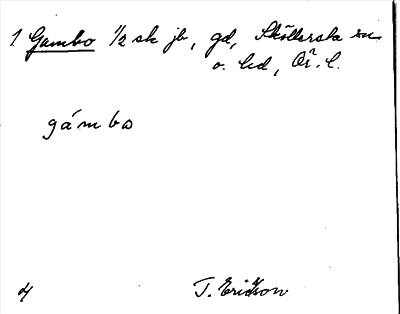 1 Gambo 1/2 sk jb, gd, Sköllersta sn
o. hd, Ör. l.
gámbo
4
T. Ericsson